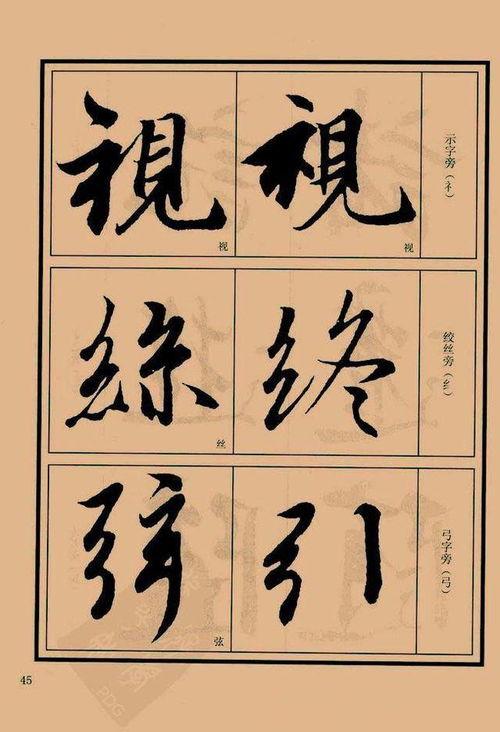 示字旁（礻）
視 視
视 视
绞丝旁（纟）
终 絲
丝
弓字旁（弓）
引 弦
弦
45
PDG